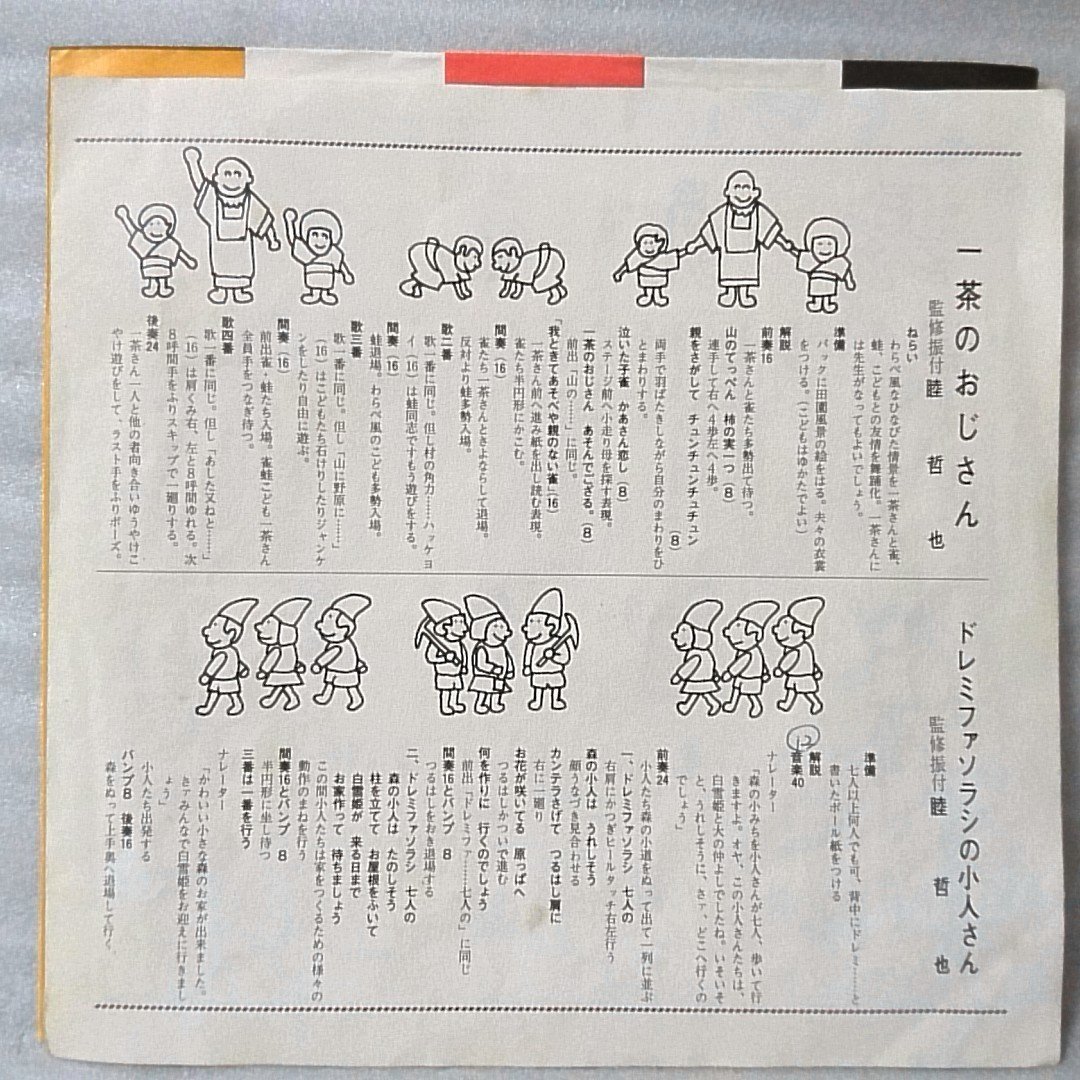 一茶のおじさん
監修振付 睦哲也
ねらい
わらべ風なひなびた情景を一茶さんと雀、
蛙、こどもとの友情を舞踊化。一茶さんに
は先生がなってもよいでしょう。
準備
バックに田園風景の絵をはる。夫々の衣裳
をつける。(こどもはゆかたでよい)
解説
前奏16
一茶さんと雀たち多勢出て待つ。
山のてっぺん 柿の実一つ(8)
連手して右へ4歩左へ4歩。
親をさがして チュンチュンチュチュン
(8)
両手で羽ばたきしながら自分のまわりをひ
とまわりする。
泣いた子雀 かあさん恋し(8)
ステージ前へ小走り母を探す表現。
一茶のおじさん あそんでござる。(8)
前出「山の……」に同じ。
「我ときてあそべや親のない雀」(16)
一茶さん前へ進み紙を出し読む表現。
雀たち半円形にかこむ。
間奏(16)
雀たち一茶さんときよならして退場。
反対より蛙多勢入場。
歌二番
歌一番に同じ。但し村の角力……ハッケヨ
イ(16)は蛙同志ですもう遊びをする。
間奏(16)
蛙退場。わらべ風のこども多勢入場。
歌三番
歌一番に同じ。但し「山に野原に……」
(16)はこどもたち石けりしたりジャンケ
ンをしたり自由に遊ぶ。
間奏(16)
前出雀、蛙たち入場。雀蛙こども一茶さん
全員手をつなぎ待つ。
歌四番
歌一番に同じ。但し「あした又ねと……」
(16)は肩くみ右、左と8呼間ゆれる。次
8呼間手をふりスキップで一廻りする。
後奏24
一茶さん一人と他の者向き合いゆうやけこ
やけ遊びをして、ラスト手をふりポーズ。
ドレミファソラシの小人さん
監修振付 睦哲也
準備
七人以上何人でも可、背中にドレミ……と
書いたボール紙をつける
解説
音楽40
12
ナレーター
「森の小みちを小人さんが七人、歩いて行
きますよ。オヤ、この小人さんたちは、
白雪姫と大の仲よしでしたね。いそいそ
と、うれしそうに、さァ、どこへ行くの
でしょう」
前奏24
小人たち森の小道をぬって出て一列に並ぶ
一、ドレミファソラシ 七人の
右肩にかつぎヒールタッチ右左行う
森の小人は うれしそう
顔うなづき見合わせる
カンテラさげて つるはし肩に
右に一廻り
お花が咲いてる 原っぱへ
つるはしかついで進む
何を作りに 行くのでしょう
前出「ドレミファ……七人の」に同じ
間奏16とバンプ 8
つるはしをおき退場する
二、ドレミファソラシ 七人の
森の小人は たのしそう
柱を立てて お屋根をふいて
白雪姫が 来る日まで
お家作って 待ちましょう
この間小人たちは家をつくるための様々の
動作のまねを行う
間奏16とバンプ 8
半円形に坐し待つ
三番は一番を行う
ナレーター
「かわいい小さな森のお家が出来ました。
さァみんなで白雪姫をお迎えに行きまし
ょう」
小人たち出発する
バンプ8 後奏16
森をぬって上手奥へ退場して行く。